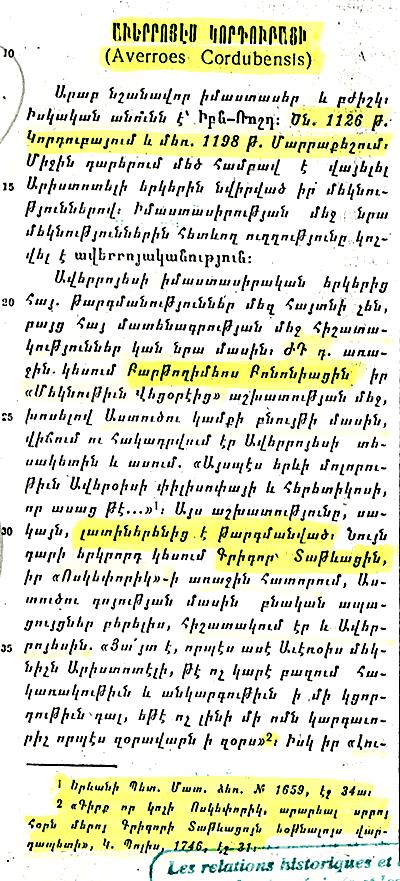 ԱՎԵՐՐՈՅԷՍ ԿՈՐԴՈՒԲԱՑԻ
10
(Averroes Cordubensis)
Արաբ նշանավոր իմաստասեր և բժիշկ։
Իսկական անունն է՝ Իբն-Ռոշդ։ Ծն. 1126 թ.
Կորդուբայում և մեռ. 1198 թ. Մարրաքեշում։
Միջին դարերում մեծ համբավ է վայելել
15 Արիստոտելի երկերին նվիրված իր մեկնու-
թյուններով։ Իմաստասիրության մեջ նրա
մեկնություններին հետևող ուղղությունը կոչ-
վել է ավերրոյականություն։
Ավերրոյեսի իմաստասիրական երկերից
20 հայ. թարգմանություններ մեզ հայտնի չեն,
բայց հայ մատենագրության մեջ հիշատա-
կություններ կան նրա մասին։ ԺԴ դ. առա-
ջին կեսում Բարթողիմեոս Բոնոնիացին իր
«Մեկնութիւն Վեցօրէից» աշխատության մեջ,
25 խոսելով Աստուծու կամքի բնույթի մասին,
վիճում ու հակադրվում էր Ավերրոյեսի տե-
սակետին և ասում. «Այսպէս երևի մոլորու-
թիւն Ավերօիսի փիլիսոփայի և հերետիկոսի,
որ ասաց թէ...»¹։ Այս աշխատությունը, սա-
30 կայն, լատիներենից է թարգմանված։ Նույն
դարի երկրորդ կեսում Գրիգոր Տաթևացին,
իր «Ոսկեփորիկ»-ի առաջին հատորում, Աս-
տուծու գոյության մասին բնական ապա-
ցույցներ բերելիս, հիշատակում էր և Ավեր-
35 րոյեսին. «Յա՛յտ է, որպէս ասէ Աւէռօիս մեկ-
նիչն Արիստոտէլի, թէ ոչ կարէ բազում հա-
կառակութիւն և անկարգութիւն ի մի կցոր-
դութիւն գալ, եթէ ոչ լինի մի ոմն կարգաւո-
րիչ որպէս զօրավարն ի զօրս»²։ Իսկ իր «Լու-
1 Երևանի Պետ. Մատ. ձեռ. № 1659, էջ 34ա։
2 «Գիրք որ կոչի Ոսկեփորիկ, արարեալ սրբոյ
հօրն մերոյ Գրիգորի Տաթևացւոյն եօթնալոյս վար-
դապետի», Կ. Պոլիս, 1746, էջ 31։
Les relations historiques et